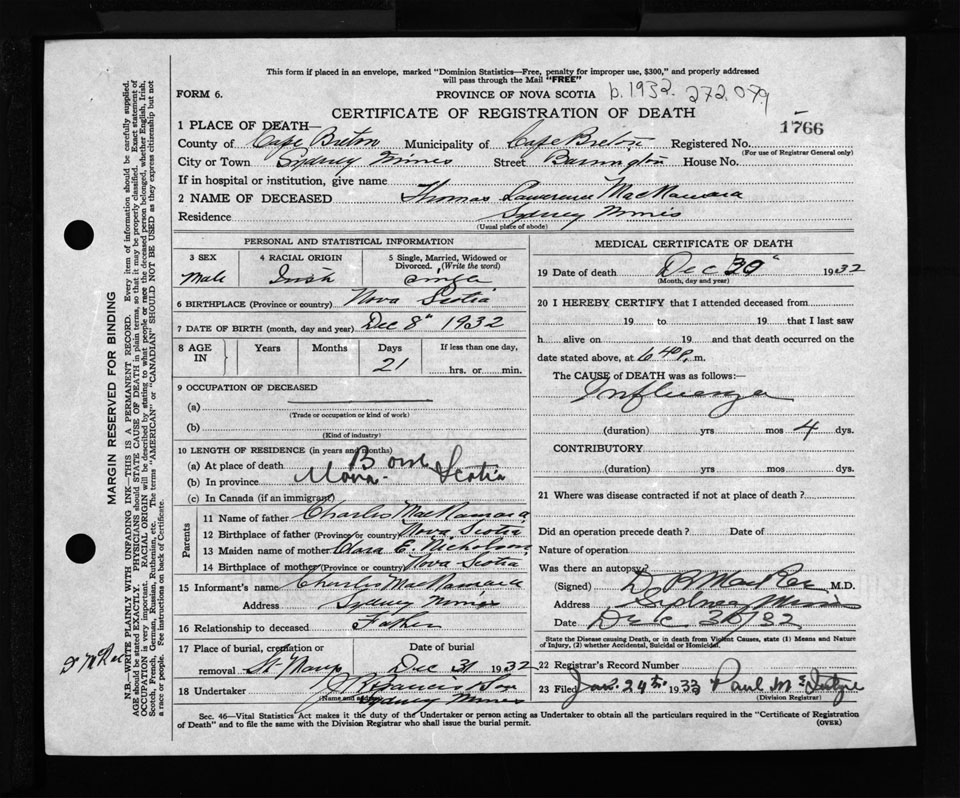 This form if placed in an envelope, marked "Dominion Statistics—Free, penalty for improper use, $300," and properly addressed
will pass through the Mail "FREE"
FORM 6.
PROVINCE OF NOVA SCOTIA
b. 1932. 272,079
CERTIFICATE OF REGISTRATION OF DEATH
1766
1 PLACE OF DEATH—
County of Cape Breton Municipality of Cape Breton Registered No.
(For use of Registrar General only)
City or Town Sydney Mines Street Barrington House No.
If in hospital or institution, give name
2 NAME OF DECEASED Thomas Lawrence MacNamara
Residence Sydney Mines
(Usual place of abode)
PERSONAL AND STATISTICAL INFORMATION
3 SEX 4 RACIAL ORIGIN 5 Single, Married, Widowed or
Divorced. (Write the word)
Male Irish Single
6 BIRTHPLACE (Province or country) Nova Scotia
7 DATE OF BIRTH (month, day and year) Dec 8" 1932
8 AGE IN Years Months Days If less than one day,
21 hrs. or min.
9 OCCUPATION OF DECEASED
(a)
(Trade or occupation or kind of work)
(b)
(Kind of industry)
10 LENGTH OF RESIDENCE (in years and months)
(a) At place of death Born
(b) In province Nova Scotia
(c) In Canada (if an immigrant)
Parents
11 Name of father Charles MacNamara
12 Birthplace of father (Province or country) Nova Scotia
13 Maiden name of mother Clara E. Nicholson
14 Birthplace of mother (Province or country) Nova Scotia
15 Informant's name Charles MacNamara
Address Sydney Mines
16 Relationship to deceased Father
17 Place of burial, cremation or Date of burial
removal St Marys Dec 31 1932
18 Undertaker
Name and address
Sydney Mines
MEDICAL CERTIFICATE OF DEATH
19 Date of death Dec 30" 1932
(Month, day and year)
20 I HEREBY CERTIFY that I attended deceased from
19 to 19 that I last saw
h alive on 19 and that death occurred on the
date stated above, at 6.40 p. m.
The CAUSE of DEATH was as follows:—
Influenza
(duration) yrs mos 4 dys.
CONTRIBUTORY
(duration) yrs mos dys.
21 Where was disease contracted if not at place of death?
Did an operation precede death? Date of
Nature of operation
Was there an autopsy?
(Signed) D R MacRae M.D.
Address Sydney Mines
Date Dec 31/32
State the Disease causing Death, or in death from Violent Causes, state (1) Means and Nature
of Injury, (2) whether Accidental, Suicidal or Homicidal.
22 Registrar's Record Number
23 Filed Jan. 24th 1933 Paul
(Division Registrar)
Sec. 46—Vital Statistics Act makes it the duty of the Undertaker or person acting as Undertaker to obtain all the particulars required in the "Certificate of Registration
of Death" and to file the same with the Division Registrar who shall issue the burial permit. (OVER)
MARGIN RESERVED FOR BINDING
N.B.—WRITE PLAINLY WITH UNFADING INK—THIS IS A PERMANENT RECORD. Every item of information should be carefully supplied.
AGE should be stated EXACTLY. PHYSICIANS should STATE CAUSE OF DEATH in plain terms, so that it may be properly classified. Exact statement of
OCCUPATION is very important. RACIAL ORIGIN will be described by stating to what people or race the deceased person belonged, whether English, Irish,
Scotch, French, German, Russian, Ruthenian, etc. The terms "AMERICAN" or "CANADIAN" SHOULD NOT BE USED as they express citizenship but not
a race or people. See instructions on back of Certificate.